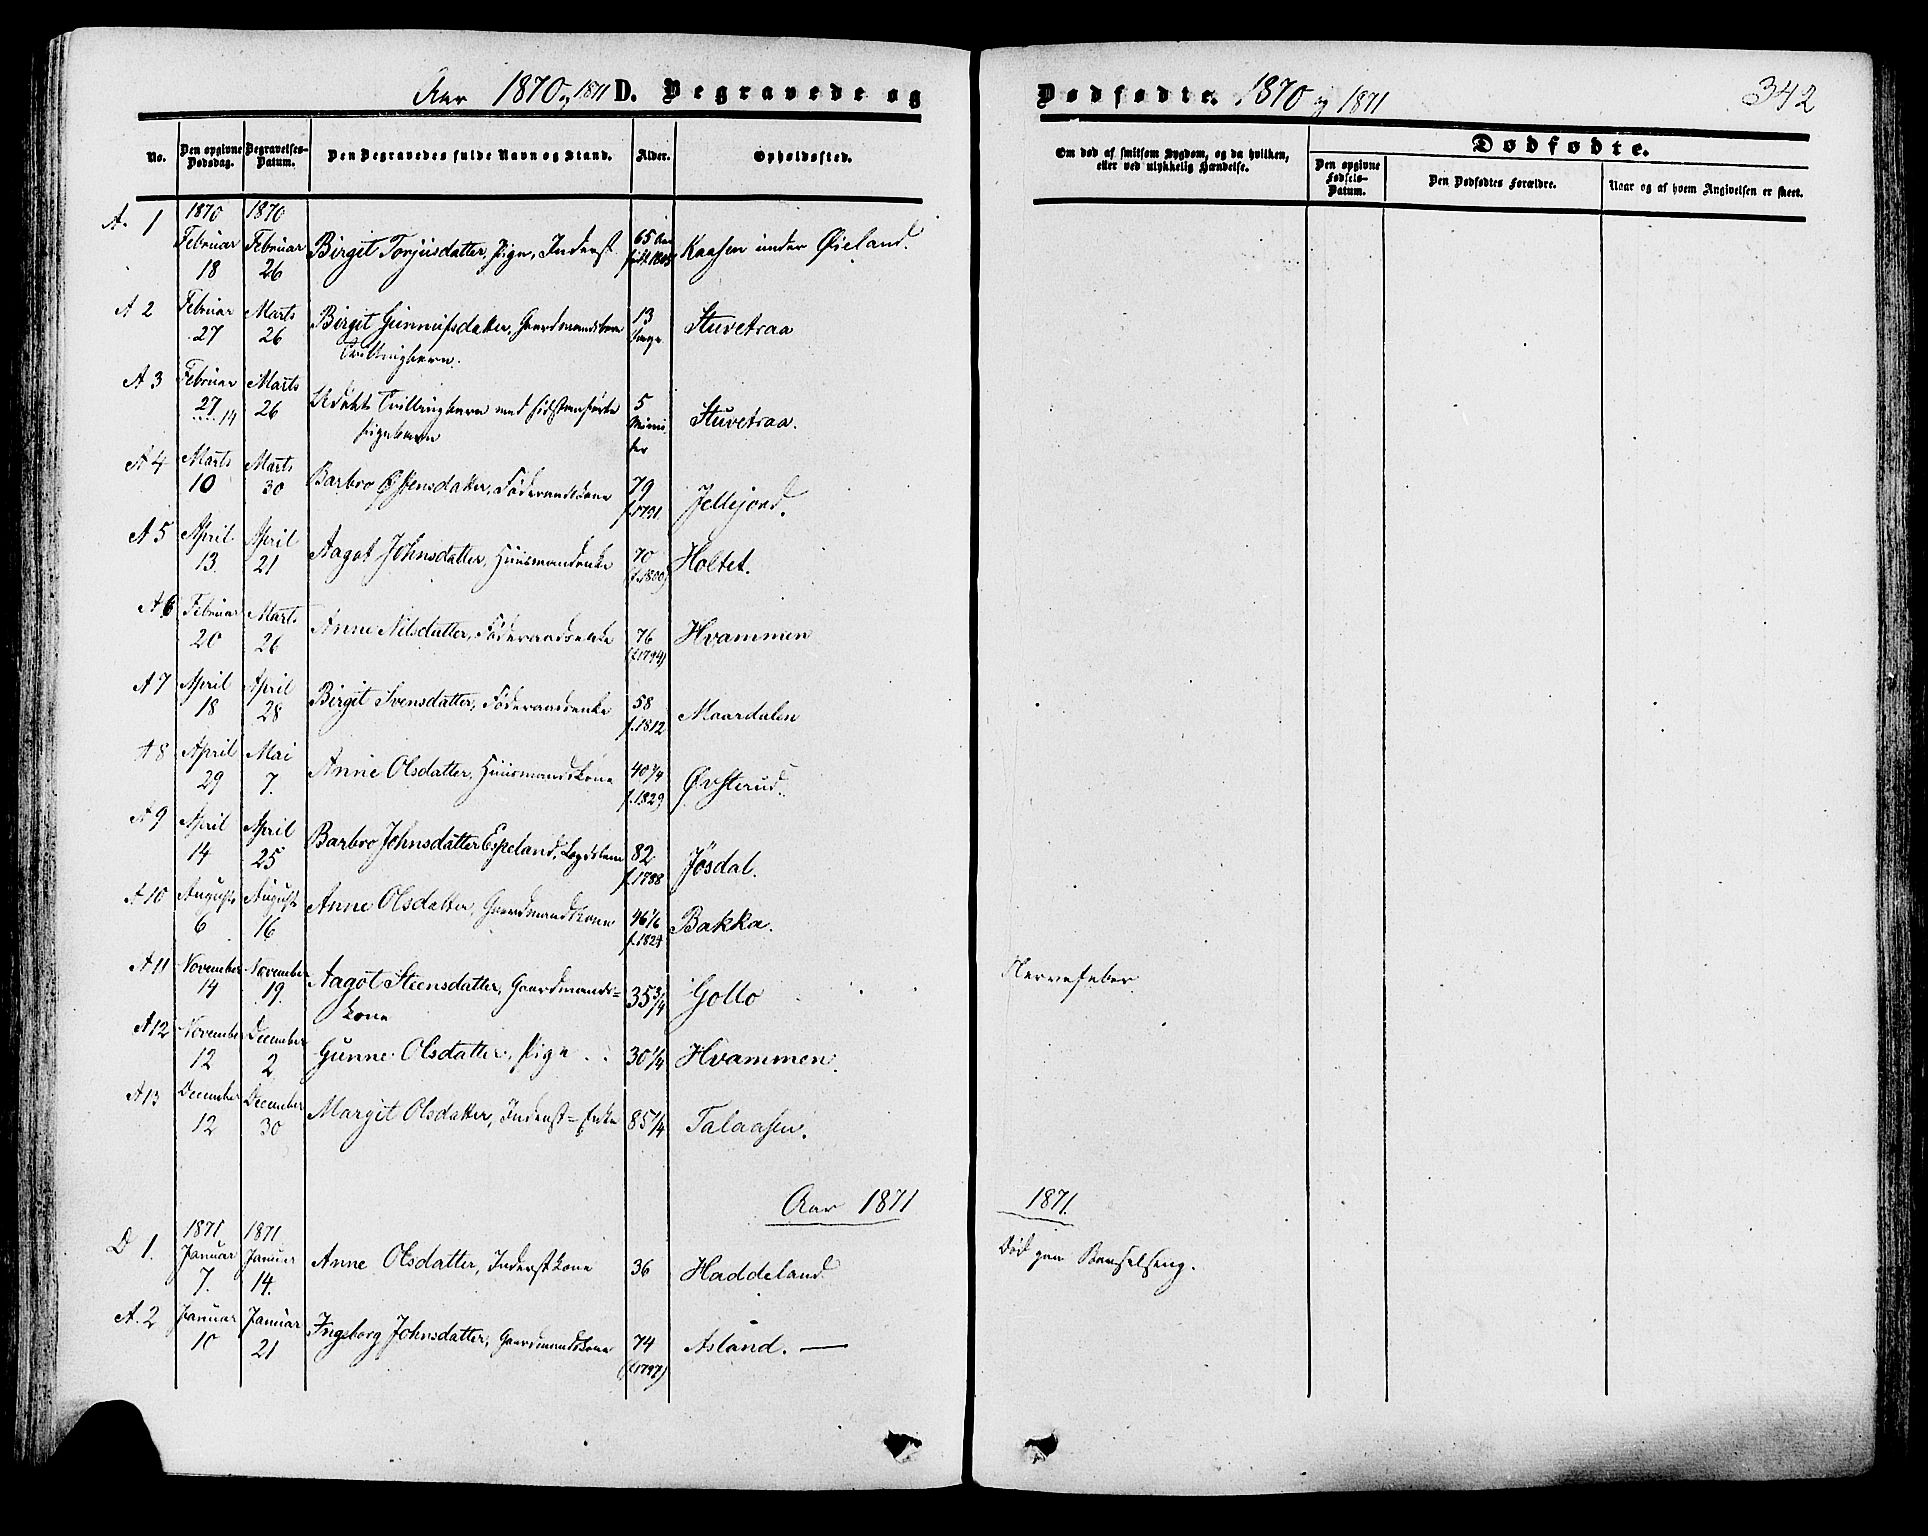 Aar 1870 og 1871 D. Begravede og
No. Den opgivne Dødsdag. Begravelses-Datum. Den Begravedes fulde Navn og Stand. Alder. Opholdssted.
A. 1 1870 Februar 18 1870 Februar 26 Birgit Torjusdatter, Pige, Inderst 65 Aar født 1805 Kaasen under Øieland.
A 2 Februar 27 Marts 26 Birgit Gunnufsdatter, Gaardmandsbarn 13 Stuvetraa
Tvillingbarn.
A 3 Februar 27 14 Marts 26 Udøbt Tvillingbarn med sidstanførte 5 Minutter Stuvetraa.
Pigebarn
A 4 Marts 10 Marts 30 Barbro Østensdatter, Föderaadskone 79 f. 1791. Jellejord.
A 5 April 13. April 21 Aagot Johnsdatter, Huusmandsenke 70 (f. 1800) Holtet.
A 6 Februar 20 Marts 26 Anne Nilsdatter, Föderaadsenke 76 (f. 1794) Hvammen
A 7 April 18 April 28 Birgit Svensdatter, Föderaadsenke 58 f. 1812 Maardalen
A 8 April 29 Mai 7. Anne Olsdatter, Huusmandskone 40 3/4 f. 1829 Øvsterud.
A 9 April 14 April 25 Barbro Johnsdatter Espeland, Lægdslem 82 f. 1788 Jösdal.
A 10 August 6 August 16 Anne Olsdatter, Gaardmandskone 46 1/6 f. 1824 Bakka.
A 11 November 14 November 19. Aagot Steensdatter, Gaardmands= 35 3/4 Gollo
kone
A 12 November 12 December 2 Gunne Olsdatter, Pige 30 1/4 Hvammen.
A 13 December 12 December 30 Margit Olsdatter, Inderst=Enke 85 1/4 Talaasen.
Aar 1871
D 1. 1871 Januar 7. 1871. Januar 14. Anne Olsdatter, Inderstkone 36 Haddeland
A. 2 Januar 10 Januar 21 Ingeborg Johnsdatter, Gaardmandskone 74 (f. 1797) Asland. —
Dødfødte. 1870 og 1871 342
Om død af smitsom Sygdom, og da hvilken, eller ved ulykkelig Hændelse.
Dødfødte.
Den opgivne Fødsels-Datum. Den Dødfødtes Forældre. Naar og af hvem Angivelsen er skeet.
Nervefeber
1871.
Död paa Barselseng.